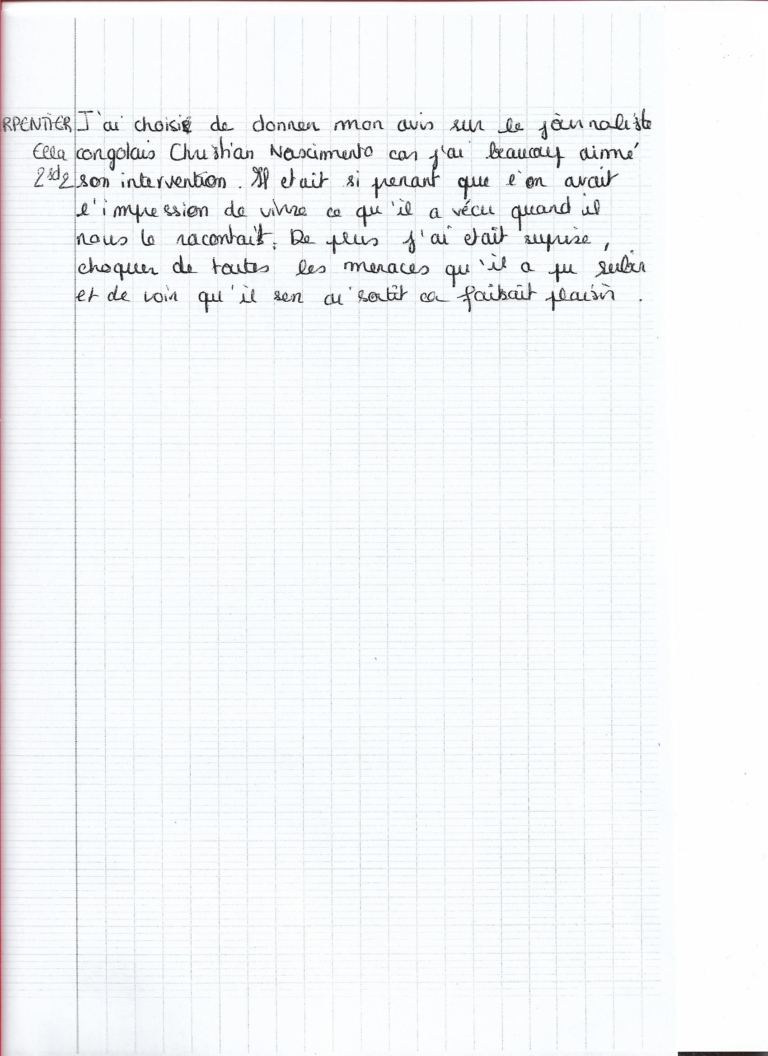 RPENTIER J'ai choisi de donner mon avis sur le journaliste
Ella congolais Christian Nascimento car j'ai beaucoup aimmé
2sd2 son intervention. Il etait si prenant que l'on avait
l'impression de vivre ce qu'il a vécu quand il
nous le racontait. De plus j'ai etait suprise,
choquer de toutes les menaces qu'il a pu subir
et de voir qu'il sen ai sortit ca faisait plaisir.